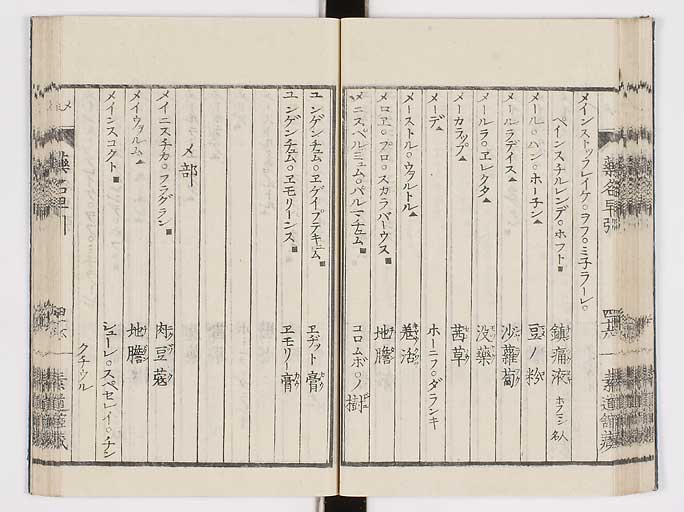 メインストッラレイケ。ヲフ。ミ子ラーレ。
ペインスチルレンデ。ホフト 鎮痛液 ホフマン名
メール。ハン。ホーチン 豆ノ粉
メールラデイス 沙蘿蔔
メールラ。ヱレクタ 没藥
メーカラップ 茜草
メーデ ホーニフ。ダランキ
メーストル。ウァルトル 羗活
メロヱ。プロ。スカラバーウス 地膽
メニスペルミュム。パルマチュム コロムボ。ノ樹
藥名早引
ユンゲンチェム。ヱゲイプテキュム ヱヂット膏
ユンゲンチェム。ヱモリーンス ヱモリー膏
メ部
メイニスチカ。フラグラン 肉豆蔲
メイウァルム 地膽
メインスコクト シューレ。スペセレイ。チン
クチゥル